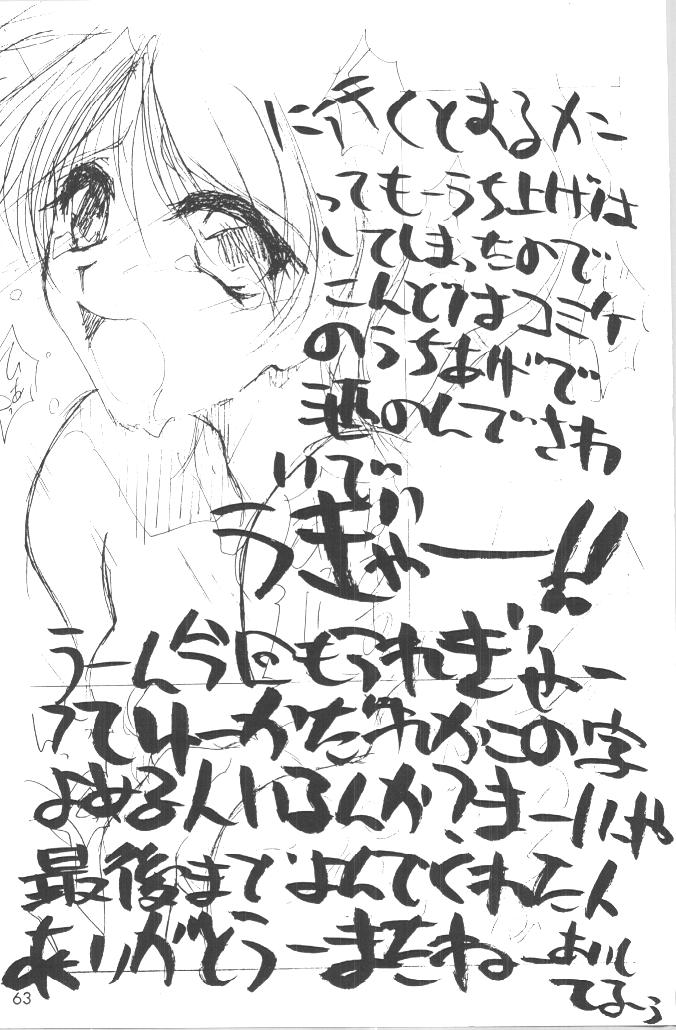 に行くとまるメに
ってもーうち上げは
してしまったので
こんどはコミケ
のうちあげで
酒のんでさわ
いでい
うぎゃー!!
うーん今にもつれぎゃー
ってゆーかだれかこの字
よめる人いるんか?まーいいや
最後までよんでくれた人
ありがとうーまたねー
あいし
てるぅ
63